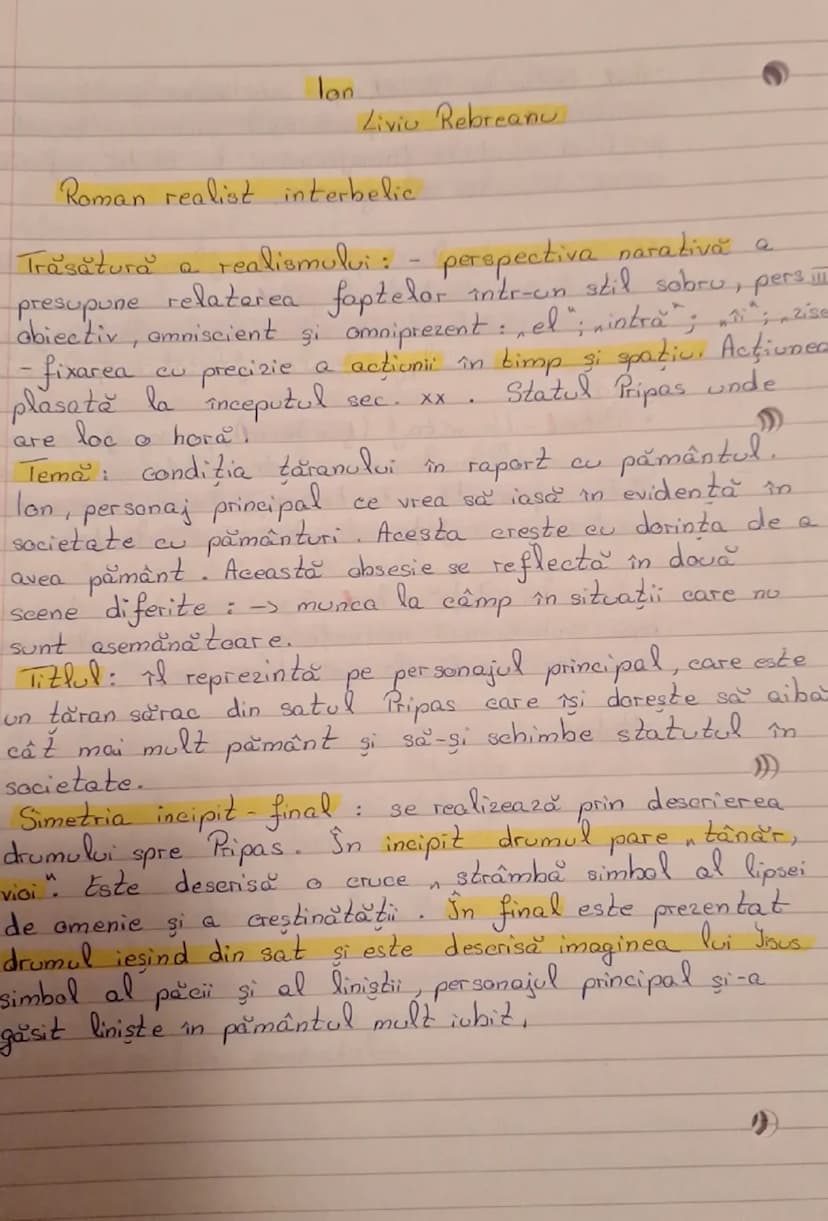 Ion
Liviu Rebreanu
Roman realist interbelic
Trăsătură a realismului: - perspectiva narativă a
presupune relatarea faptelor într-un stil sobru, pers III
obiectiv, omniscient și omniprezent: „el"; „intră"; „îi"; „zise
- fixarea cu precizie a acțiunii în timp și spațiu. Acțiunea
plasată la începutul sec. XX. Statul Pripas unde
are loc o horă.
Temă: condiția țăranului în raport cu pământul.
Ion, personaj principal ce vrea să iasă în evidentă în
societate cu pământuri. Acesta crește cu dorința de a
avea pământ. Această obsesie se reflectă în două
scene diferite: -> munca la câmp în situații care nu
sunt asemănătoare.
Titlul: îl reprezintă pe personajul principal, care este
un țăran sărac din satul Pripas care își dorește să aibă
cât mai mult pământ și să-și schimbe statutul în
societate.
Simetria incipit-final: se realizează prin descrierea
drumului spre Pripas. În incipit drumul pare „tânăr,
vioi". Este descrisă o cruce „strâmbă simbol al lipsei
de omenie și a creștinătății. În final este prezentat
drumul ieșind din sat și este descrisă imaginea lui Iisus
simbol al păcii și al liniștii, personajul principal și-a
găsit liniște în pământul mult iubit.